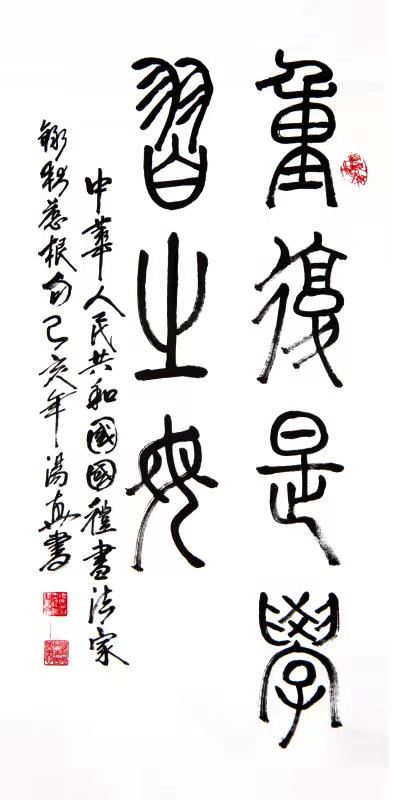 重復是學
習之母
中華人民共和國國禮書法家
錄狄慈根句己亥年湯真書